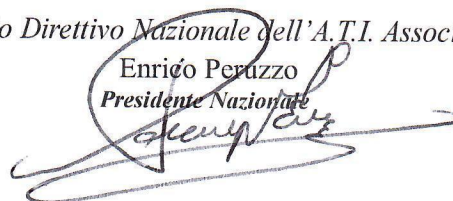 o Direttivo Nazionale dell'A.T.I. Assoc
Enrico Peruzzo
Presidente Nazionale